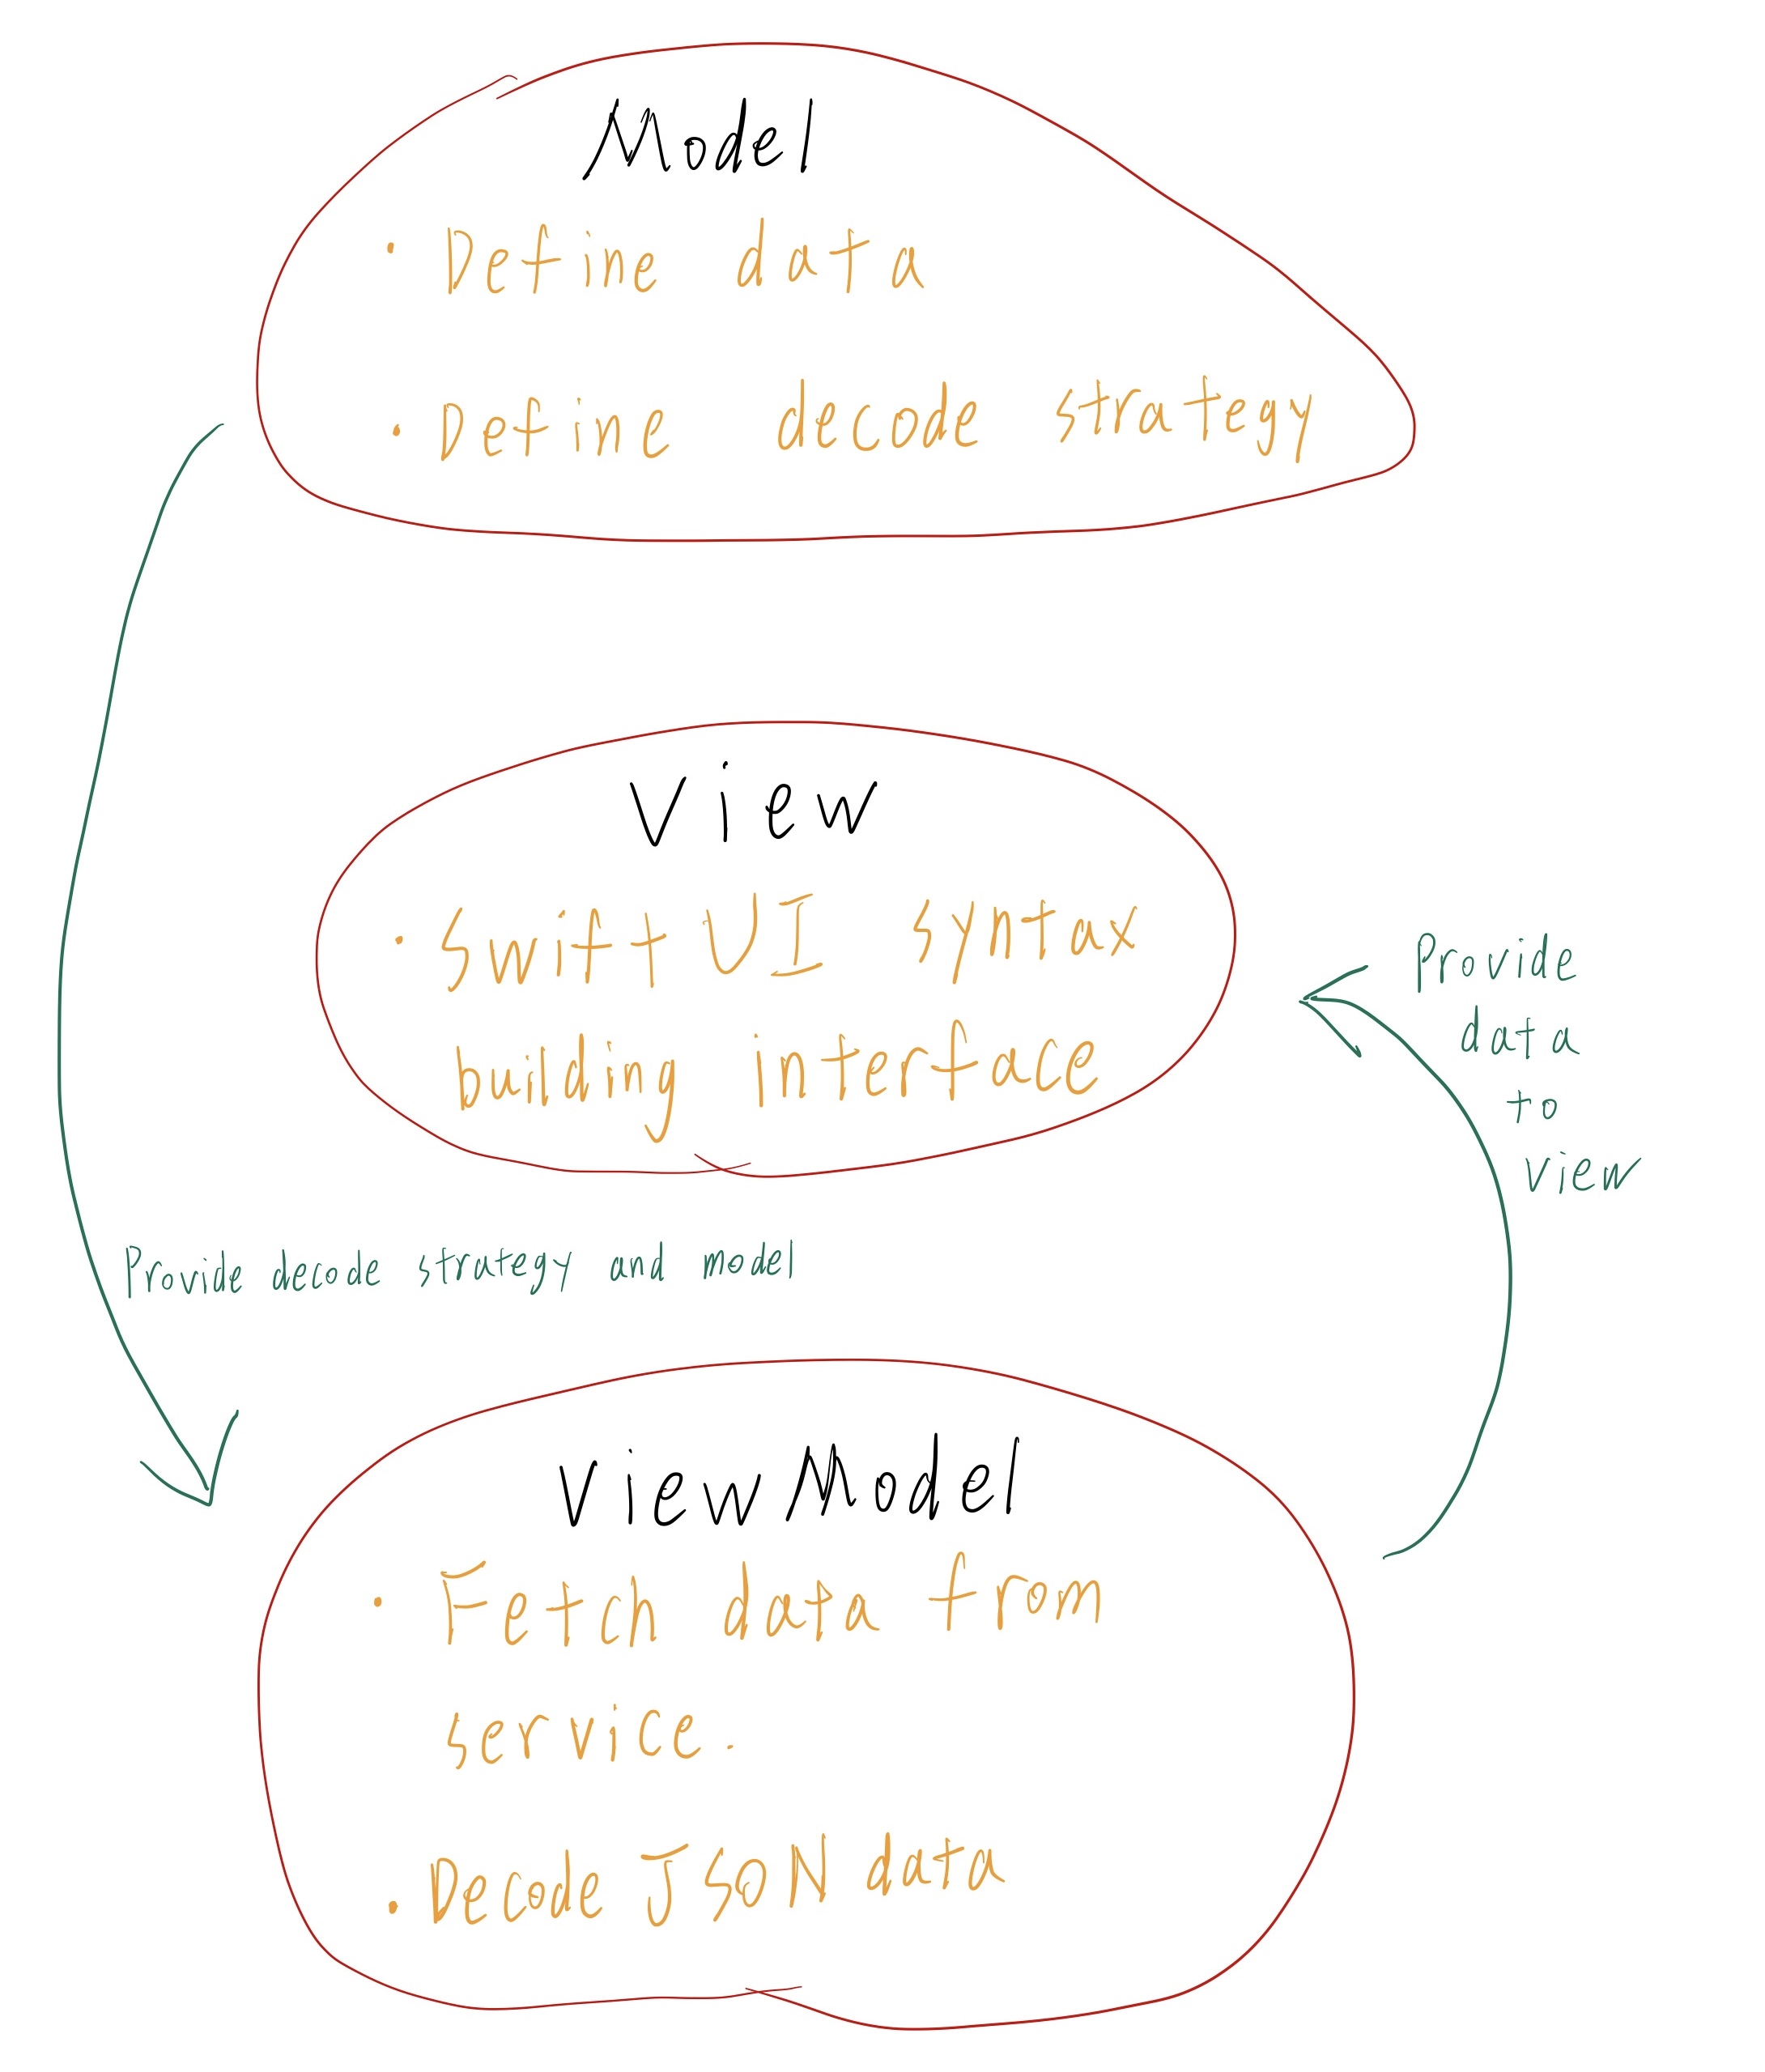 Model
· Define data
· Define decode strategy
View
· SwiftUI syntax
building interface
Provide
data
to
view
Provide decode strategy and model
ViewModel
· Fetch data from
service.
· Decode JSON data